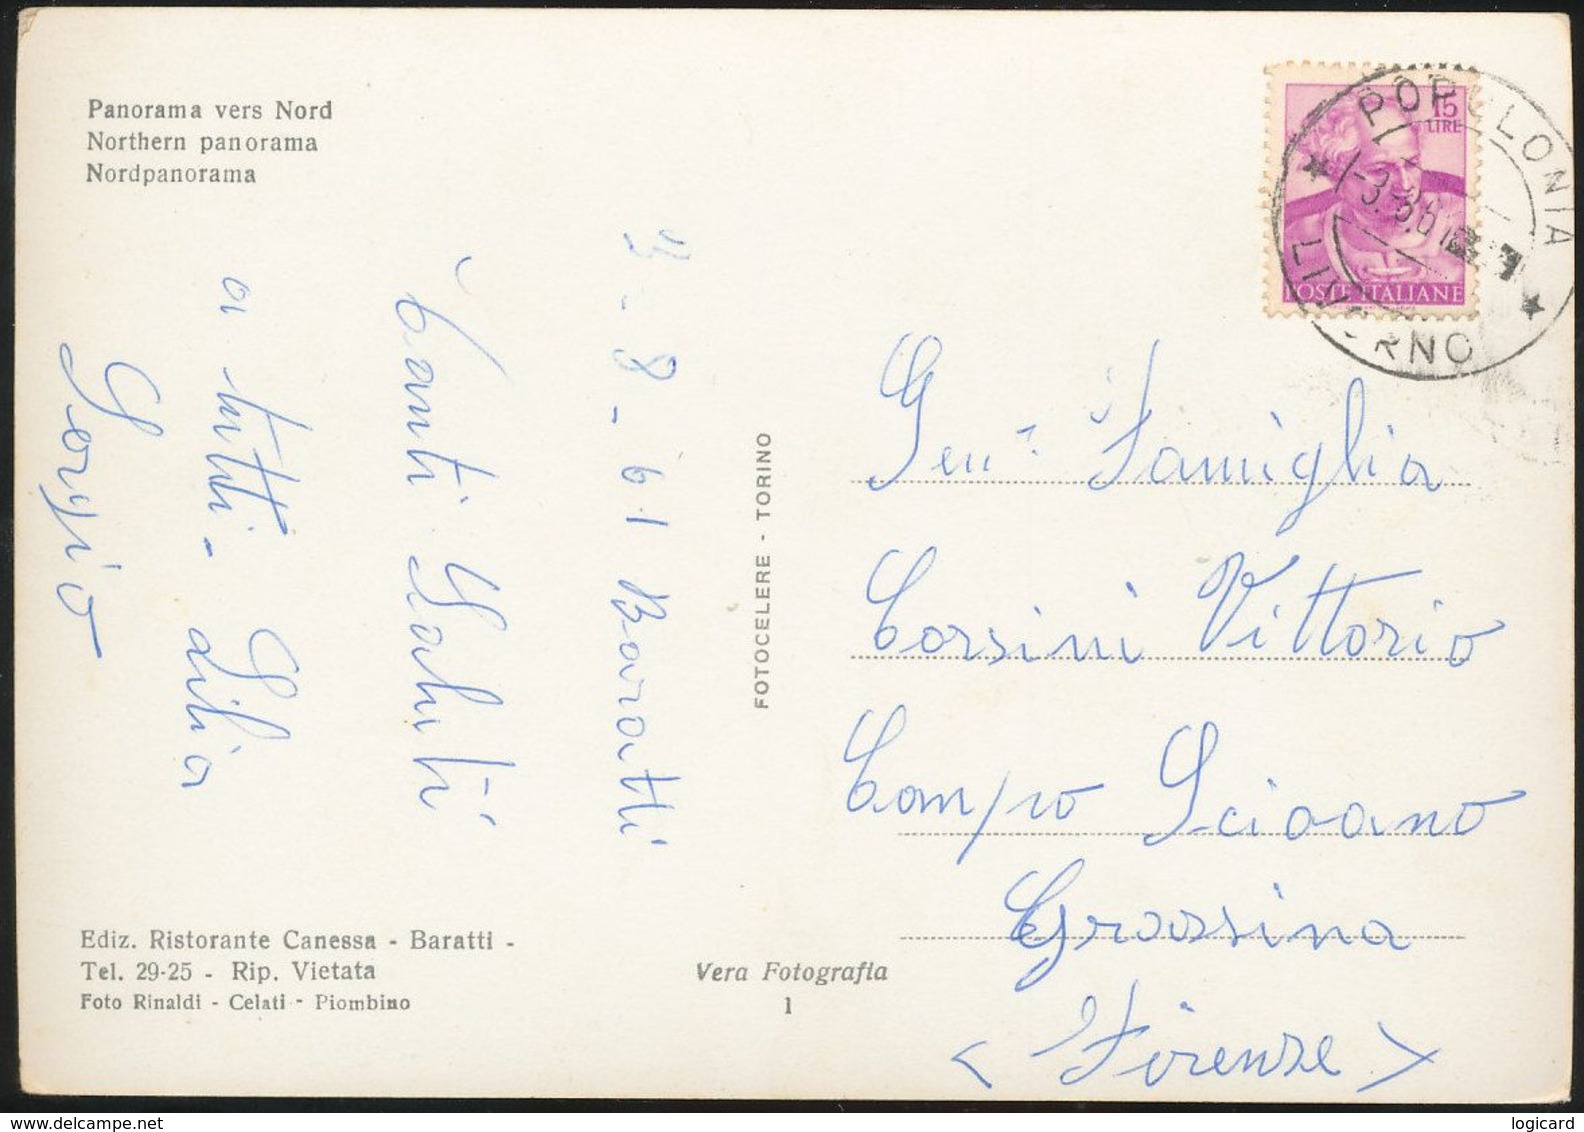 Panorama vers Nord
Northern panorama
Nordpanorama
3-8-61 Baratti
Tanti Saluti
a tutti - Lilia
Sergio
Ediz. Ristorante Canessa - Baratti -
Tel. 29-25 - Rip. Vietata
Foto Rinaldi - Celati - Piombino
FOTOCELERE - TORINO
Vera Fotografia
1
15
LIRE
POSTE ITALIANE
POPULONIA
LIVORNO
Famiglia
Corsini Vittorio
Campo
Grassina
<Firenze>
delcampe.net
logicard